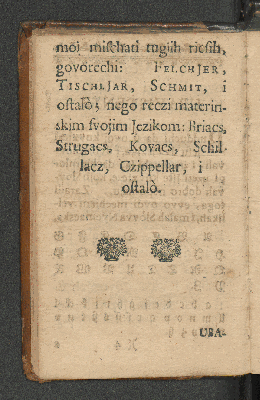 moj mischati tugiih riesih,
govorechi: FELCHJER,
TISCHLJAR, SCHMIT, i
ostalò; nego reczi materin-
skim svojim Jezikom: Briacs,
Strugacs, Kovacs, Schil-
lacz, Czippellar, i
ostalò.
UBA-